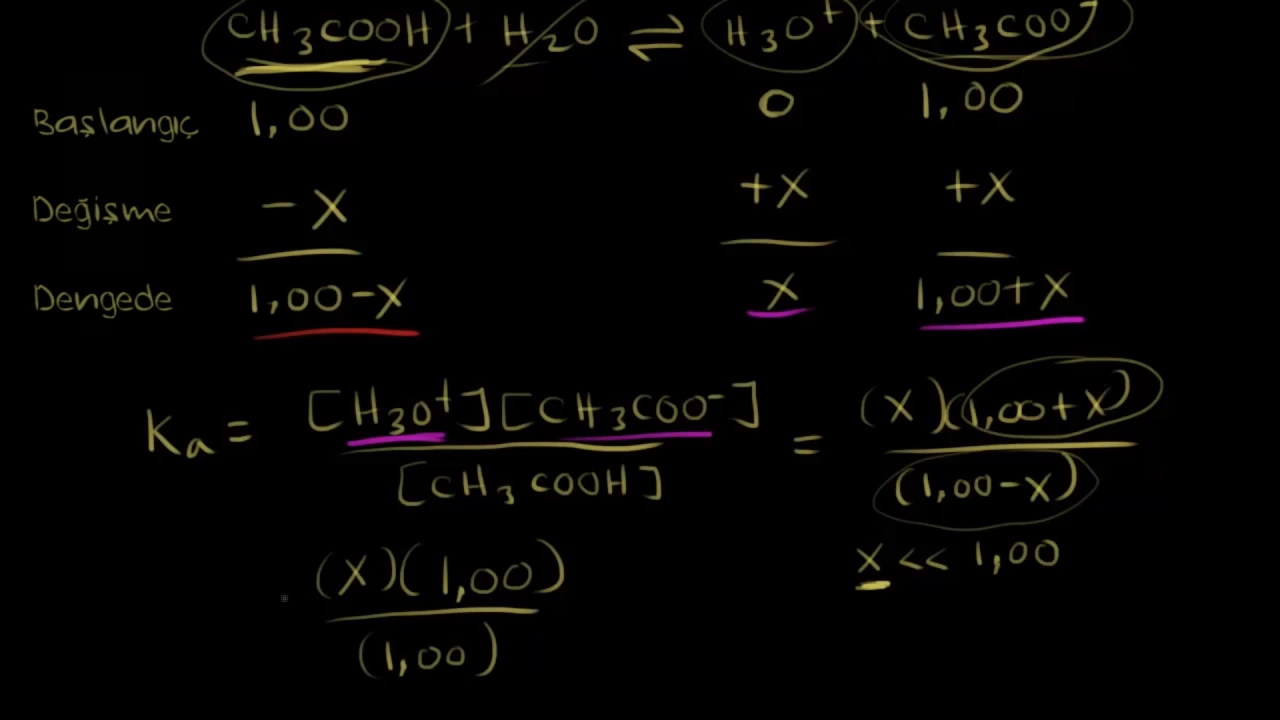 CH₃COOH + H₂O ⇌ H₃O⁺ + CH₃COO⁻
Başlangıç 1,00 0 1,00
Değişme -X +X +X
Dengede 1,00-X X 1,00+X
Ka = [H₃O⁺][CH₃COO⁻] / [CH₃COOH] = (X)(1,00+X) / (1,00-X)
X << 1,00
(X)(1,00) / (1,00)